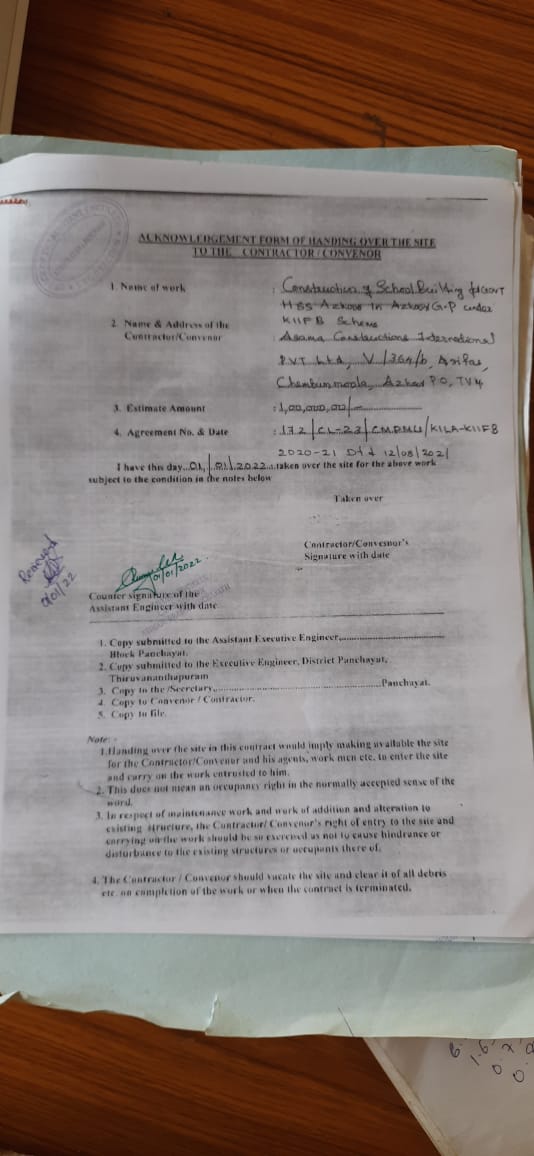 ACKNOWLEDGEMENT FORM OF HANDING OVER THE SITE
TO THE CONTRACTOR / CONVENOR
1. Name of work : Construction of School Building for GOVT
HSS Azkoor In Azkoor G.P under
KIIFB Scheme
2. Name & Address of the
Contractor/Convenor : Asama Constructions International
PVT Ltd, V/364/b, Asifas,
Chembunmoola, Azkoor P.O, TVM
3. Estimate Amount : 1,00,000,00/-
4. Agreement No. & Date : 172/CL-23/CMRMU/KILA-KIIFB
2020-21 Dtd 12/08/2021
I have this day..01/01/2022..taken over the site for the above work
subject to the condition in the notes below
Taken over
Contractor/Convesnor's
Signature with date
Received
01/01/22
01/01/2022
Counter signature of the
Assistant Engineer with date
1. Copy submitted to the Assistant Executive Engineer,..............................
Block Panchayat.
2. Copy submitted to the Executive Engineer, District Panchayat,
Thiruvananthapuram
3. Copy to the /Secretary,..................................................Panchayat.
4. Copy to Convenor / Contractor.
5. Copy to file.
Note: -
1.Handing over the site in this contract would imply making available the site
for the Contractor/Convenor and his agents, work men etc. to enter the site
and carry on the work entrusted to him.
2. This does not mean an occupancy right in the normally accepted sense of the
word.
3. In respect of maintenance work and work of addition and alteration to
existing structure, the Contractor/ Convenor's right of entry to the site and
carrying on the work should be so exercised as not to cause hindrance or
disturbance to the existing structures or occupants there of.
4. The Contractor / Convenor should vacate the site and clear it of all debris
etc. on completion of the work or when the contract is terminated.